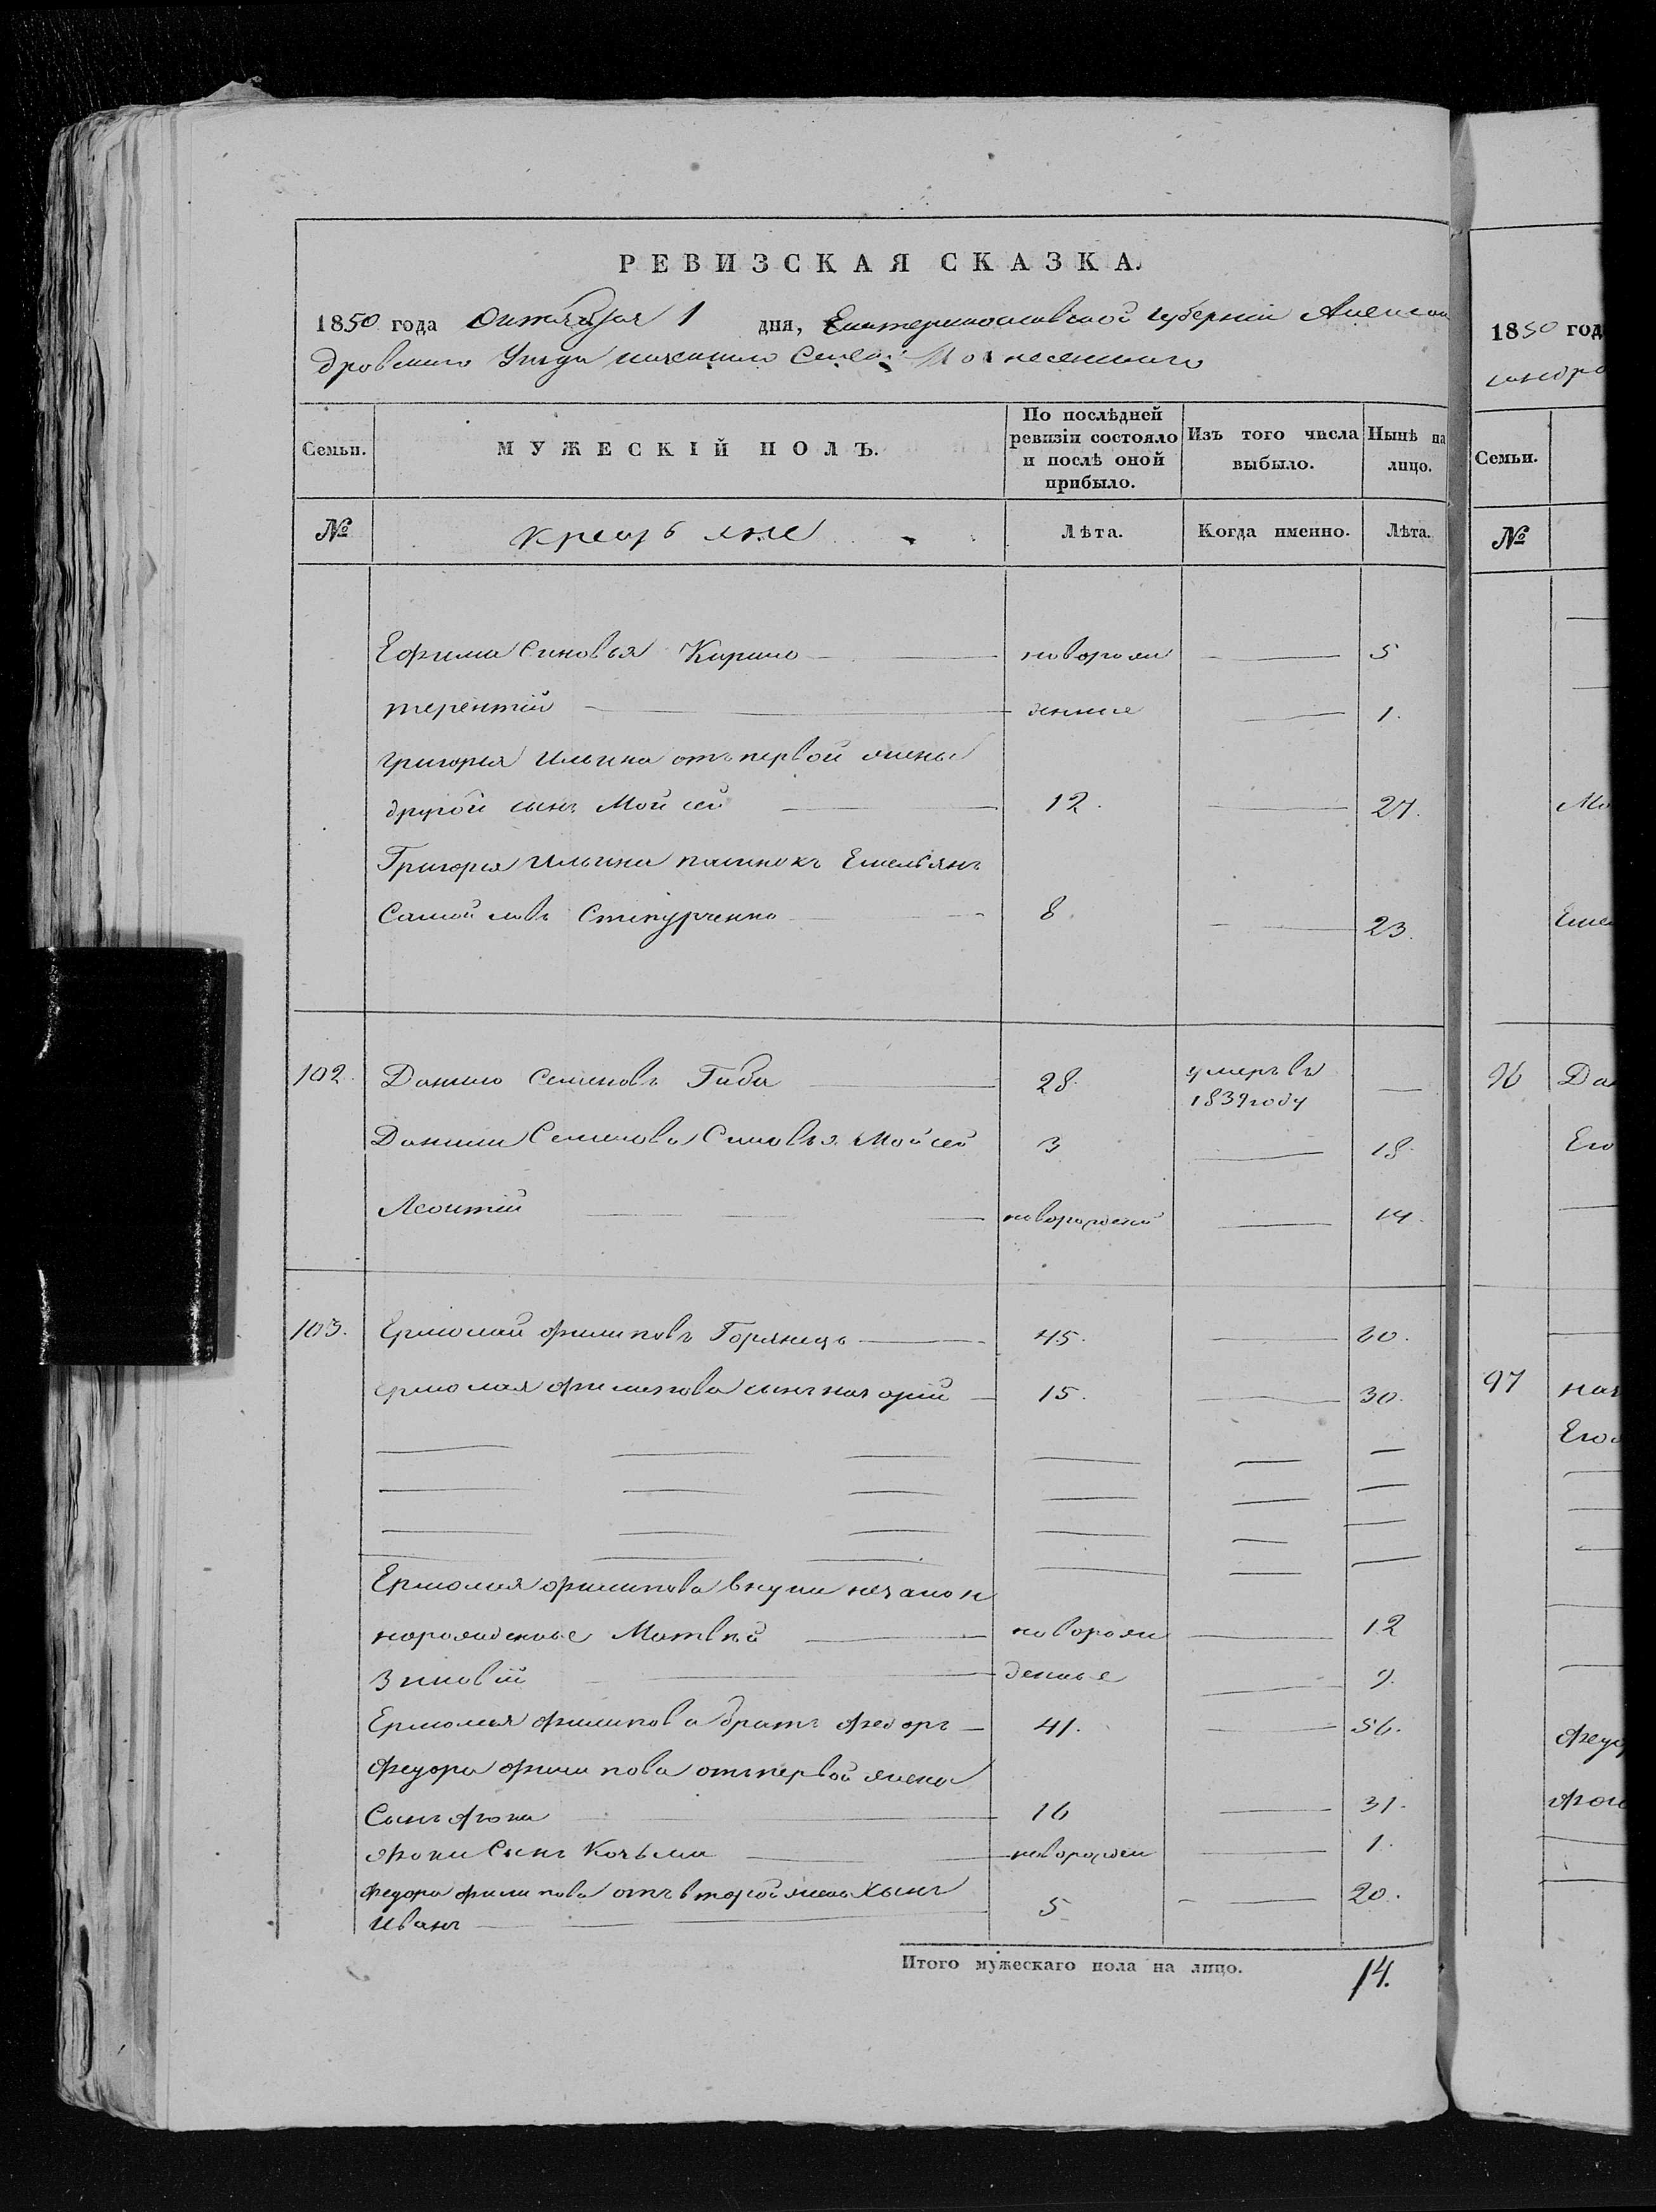 РЕВИЗСКАЯ СКАЗКА.
1850 года Октября 1 дня, Екатеринославской губернии Алексан
дровского Уезда казенного Села Вознесенского
Семьи. МУЖЕСКІЙ ПОЛЪ. По послѣдней ревизіи состояло и послѣ оной прибыло. Изъ того числа выбыло. Нынѣ на лицо.
№ крестьяне Лѣта. Когда именно. Лѣта.
Ефима Синовья Кирило — новорож — 5
терентій — денные — 1.
григорія Ильина отъ первой жены
другой сынъ Мойсей — 12. — 27.
Григорія Ильина пасинокъ Емельянъ
Самойловъ — 8. — 23.
102. Данило Семеновъ Габа — 28. умеръ въ 1839 году —
Данила Семенова Синовья Мойсей 3 — 18.
Леонтій — новорожденой — 14.
103. Ермолай филиповъ Горянецъ — 45. — 60.
ермолая филипова сынъ — 15. — 30.
Ермолая филипова внуки незакон
норожденные Матвѣй — новорож — 12
Зиновій — денные — 9.
Ермолая филипова братъ федоръ — 41. — 56.
федора филипова отъ первой жены
Сынъ фока — 16 — 31.
фоки Сынъ Козьма — новорожден — 1.
федора филипова отъ второй жены Сынъ
Иванъ — 5 — 20.
Итого мужескаго пола на лицо. 14.
1850 год
Семьи.
№
96 Да
Его
97
Его